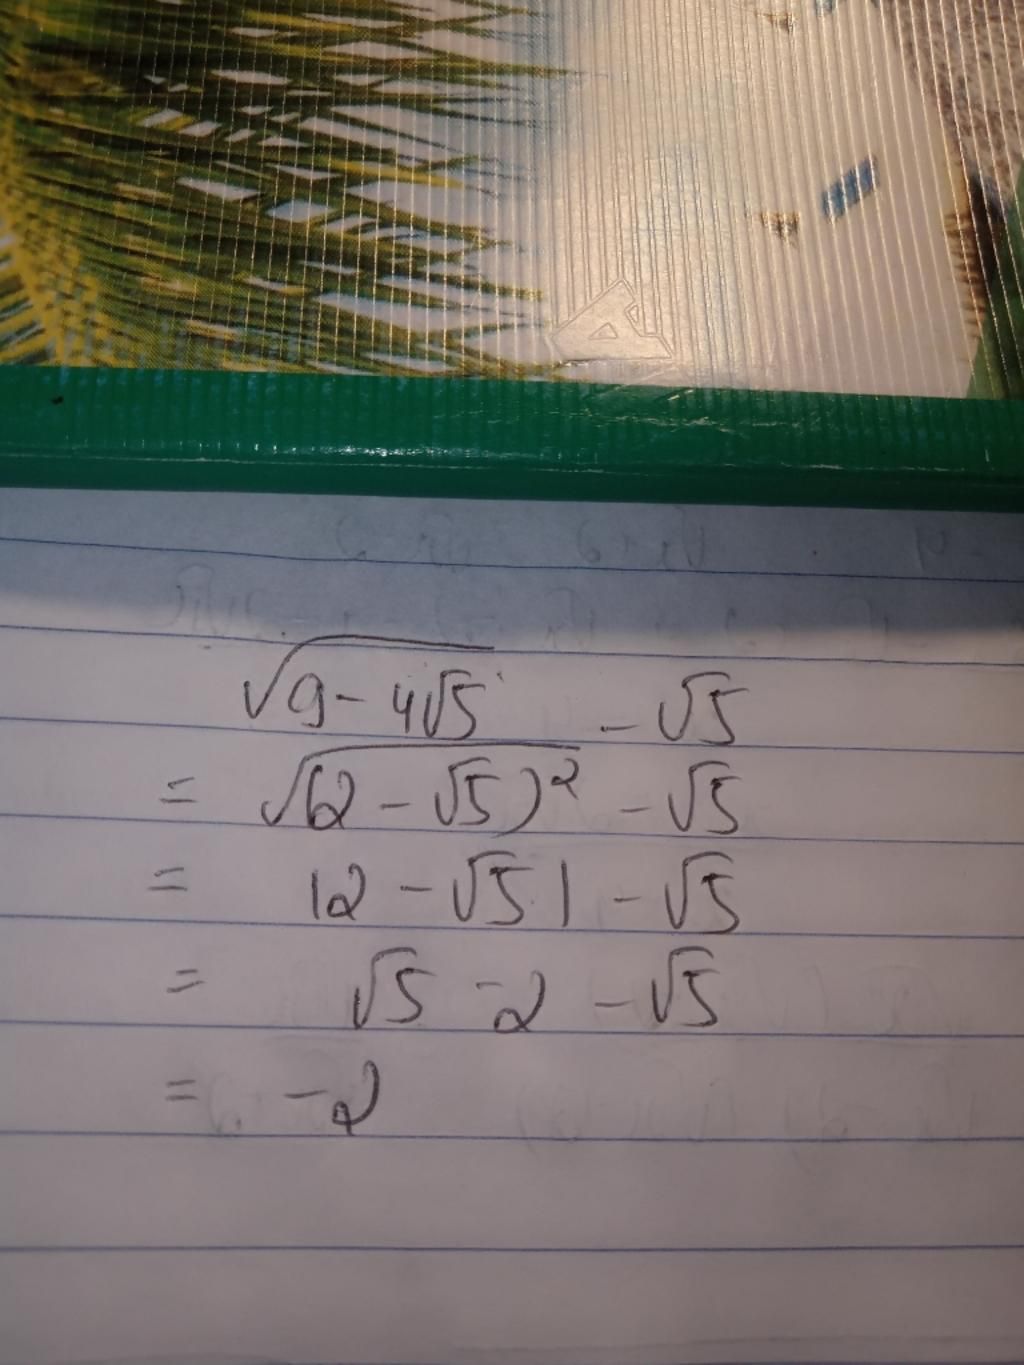 √(9 - 4√5) - √5
= √((2 - √5)²) - √5
= |2 - √5| - √5
= √5 - 2 - √5
= -2